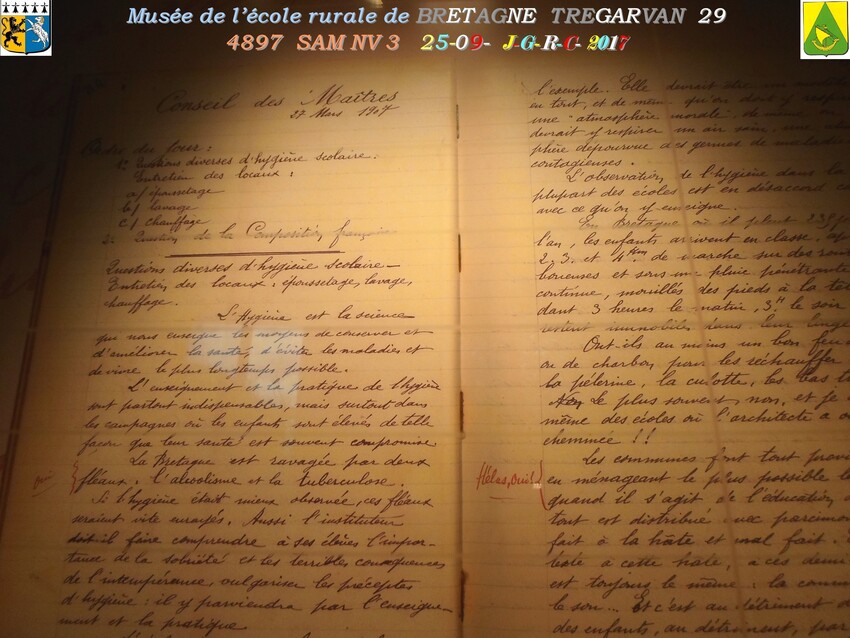 Musée de l'école rurale de BRETAGNE TREGARVAN 29
4897 SAM NV 3 25-09- J-G-R-C- 2017
Conseil des Maîtres
27 Mars 1907
Ordre du Jour :
1° Questions diverses d'hygiène scolaire.
Entretien des locaux :
a/ époussetage
b/ lavage
c/ chauffage
2° Question de la Composition française
Questions diverses d'hygiène scolaire —
Entretien des locaux : époussetage, lavage,
chauffage.
L'Hygiène est la science
qui nous enseigne les moyens de conserver et
d'améliorer la santé, d'éviter les maladies et
de vivre le plus longtemps possible.
L'enseignement et la pratique de l'hygiène
sont partout indispensables, mais surtout dans
les campagnes où les enfants sont élevés de telle
façon que leur santé est souvent compromise.
La Bretagne est ravagée par deux
fléaux : l'alcoolisme et la tuberculose.
Si l'hygiène était mieux observée, ces fléaux
seraient vite enrayés. Aussi l'instituteur
doit-il faire comprendre à ses élèves l'impor-
tance de la sobriété et les terribles conséquences
de l'intempérance, vulgariser les préceptes
d'hygiène : il y parviendra par l'enseigne-
ment et la pratique
l'exemple. Elle devrait être un
en tout, et de même qu'on doit y
une "atmosphère morale", de même
devrait y respirer un air sain, une
phère dépourvue des germes de maladies
contagieuses.
L'observation de l'hygiène dans la
plupart des écoles est en désaccord
avec ce qu'on y enseigne.
En Bretagne où il pleut
l'an, les enfants arrivent en classe,
2, 3, et 4 Km de marche sur des
boueuses et sous une pluie pénétrante
continue, mouillés des pieds à la
dant 3 heures le matin, 3h le soir
restent immobiles dans leur
Ont-ils au moins un bon feu
ou de charbon pour les réchauffer
la pèlerine, la culotte, les bas
Le plus souvent non, et je
même des écoles où l'architecte a
cheminée !!
Hélas, oui!
Les communes font tout
en ménageant le plus possible
quand il s'agit de l'éducation
tout est distribué avec parcimon
fait à la hâte et mal fait.
à cette hâte, à ces demi
est toujours le même : la comm
le son... Et c'est au détriment
des enfants, au détriment, par